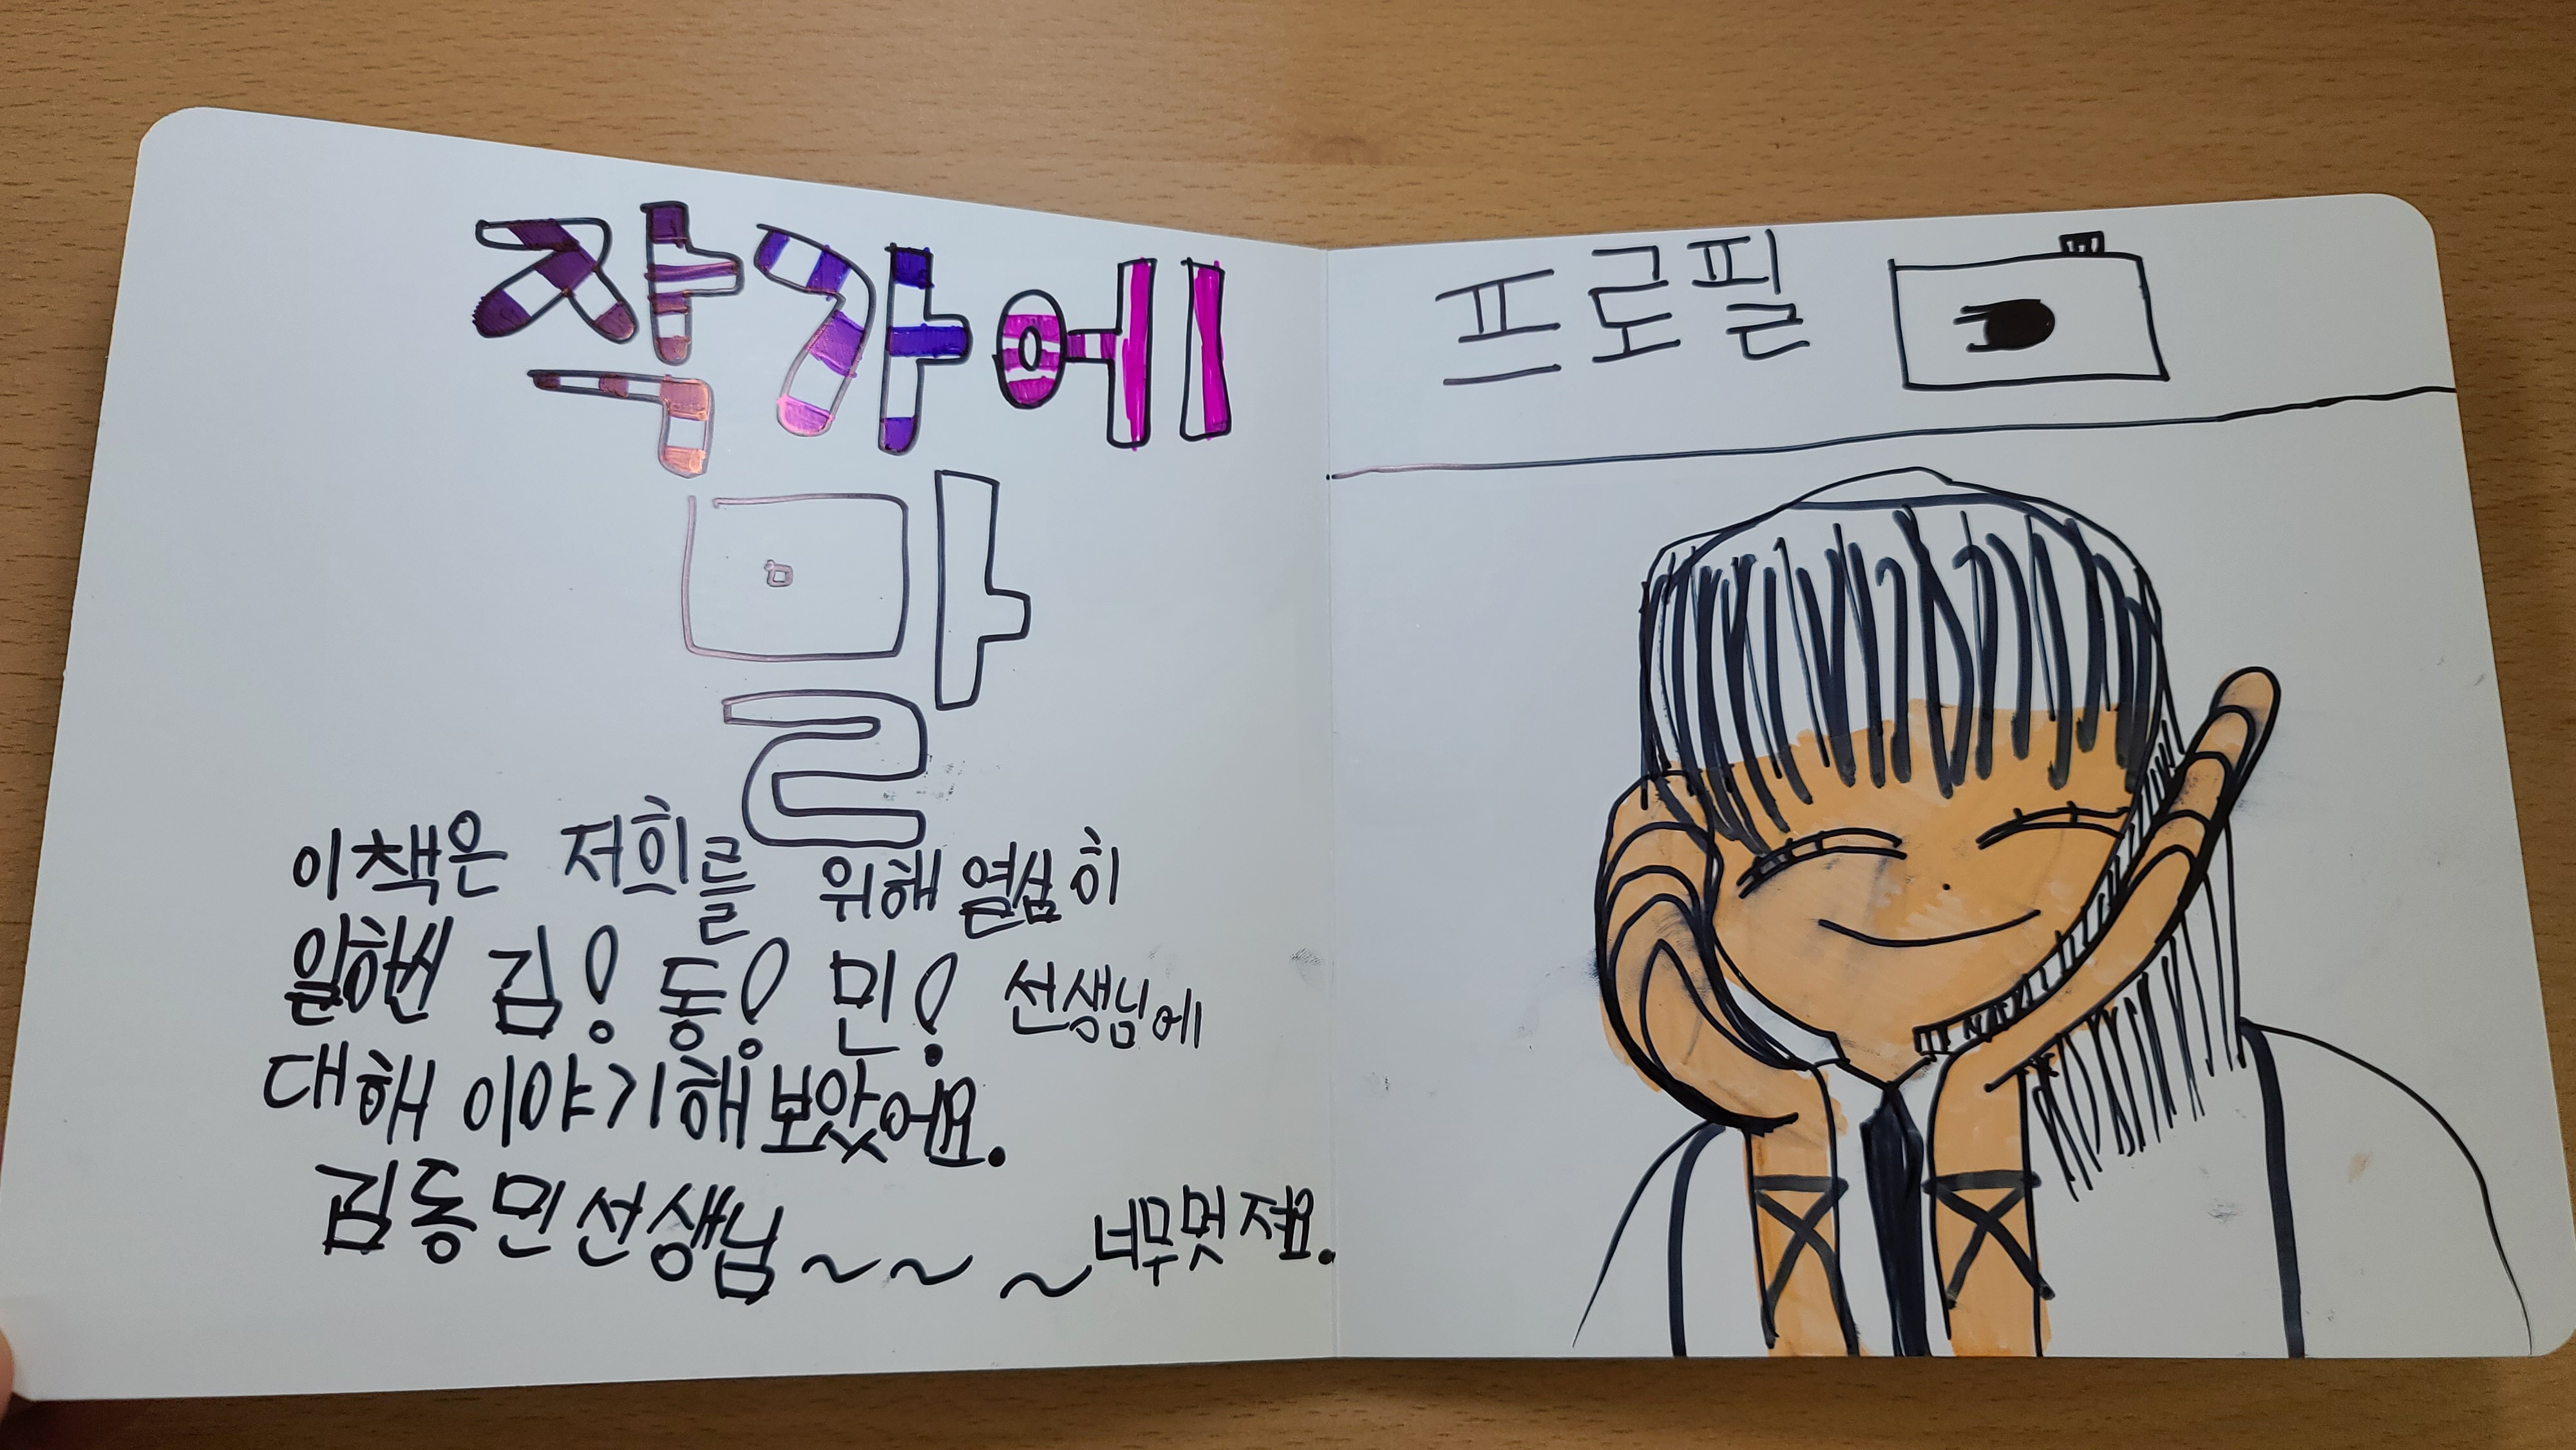 작가에
말
이 책은 저희를 위해 열심히
일하신 김! 동! 민! 선생님에
대해 이야기해 보았어요.
김동민선생님~~~너무멋져요.
프로필